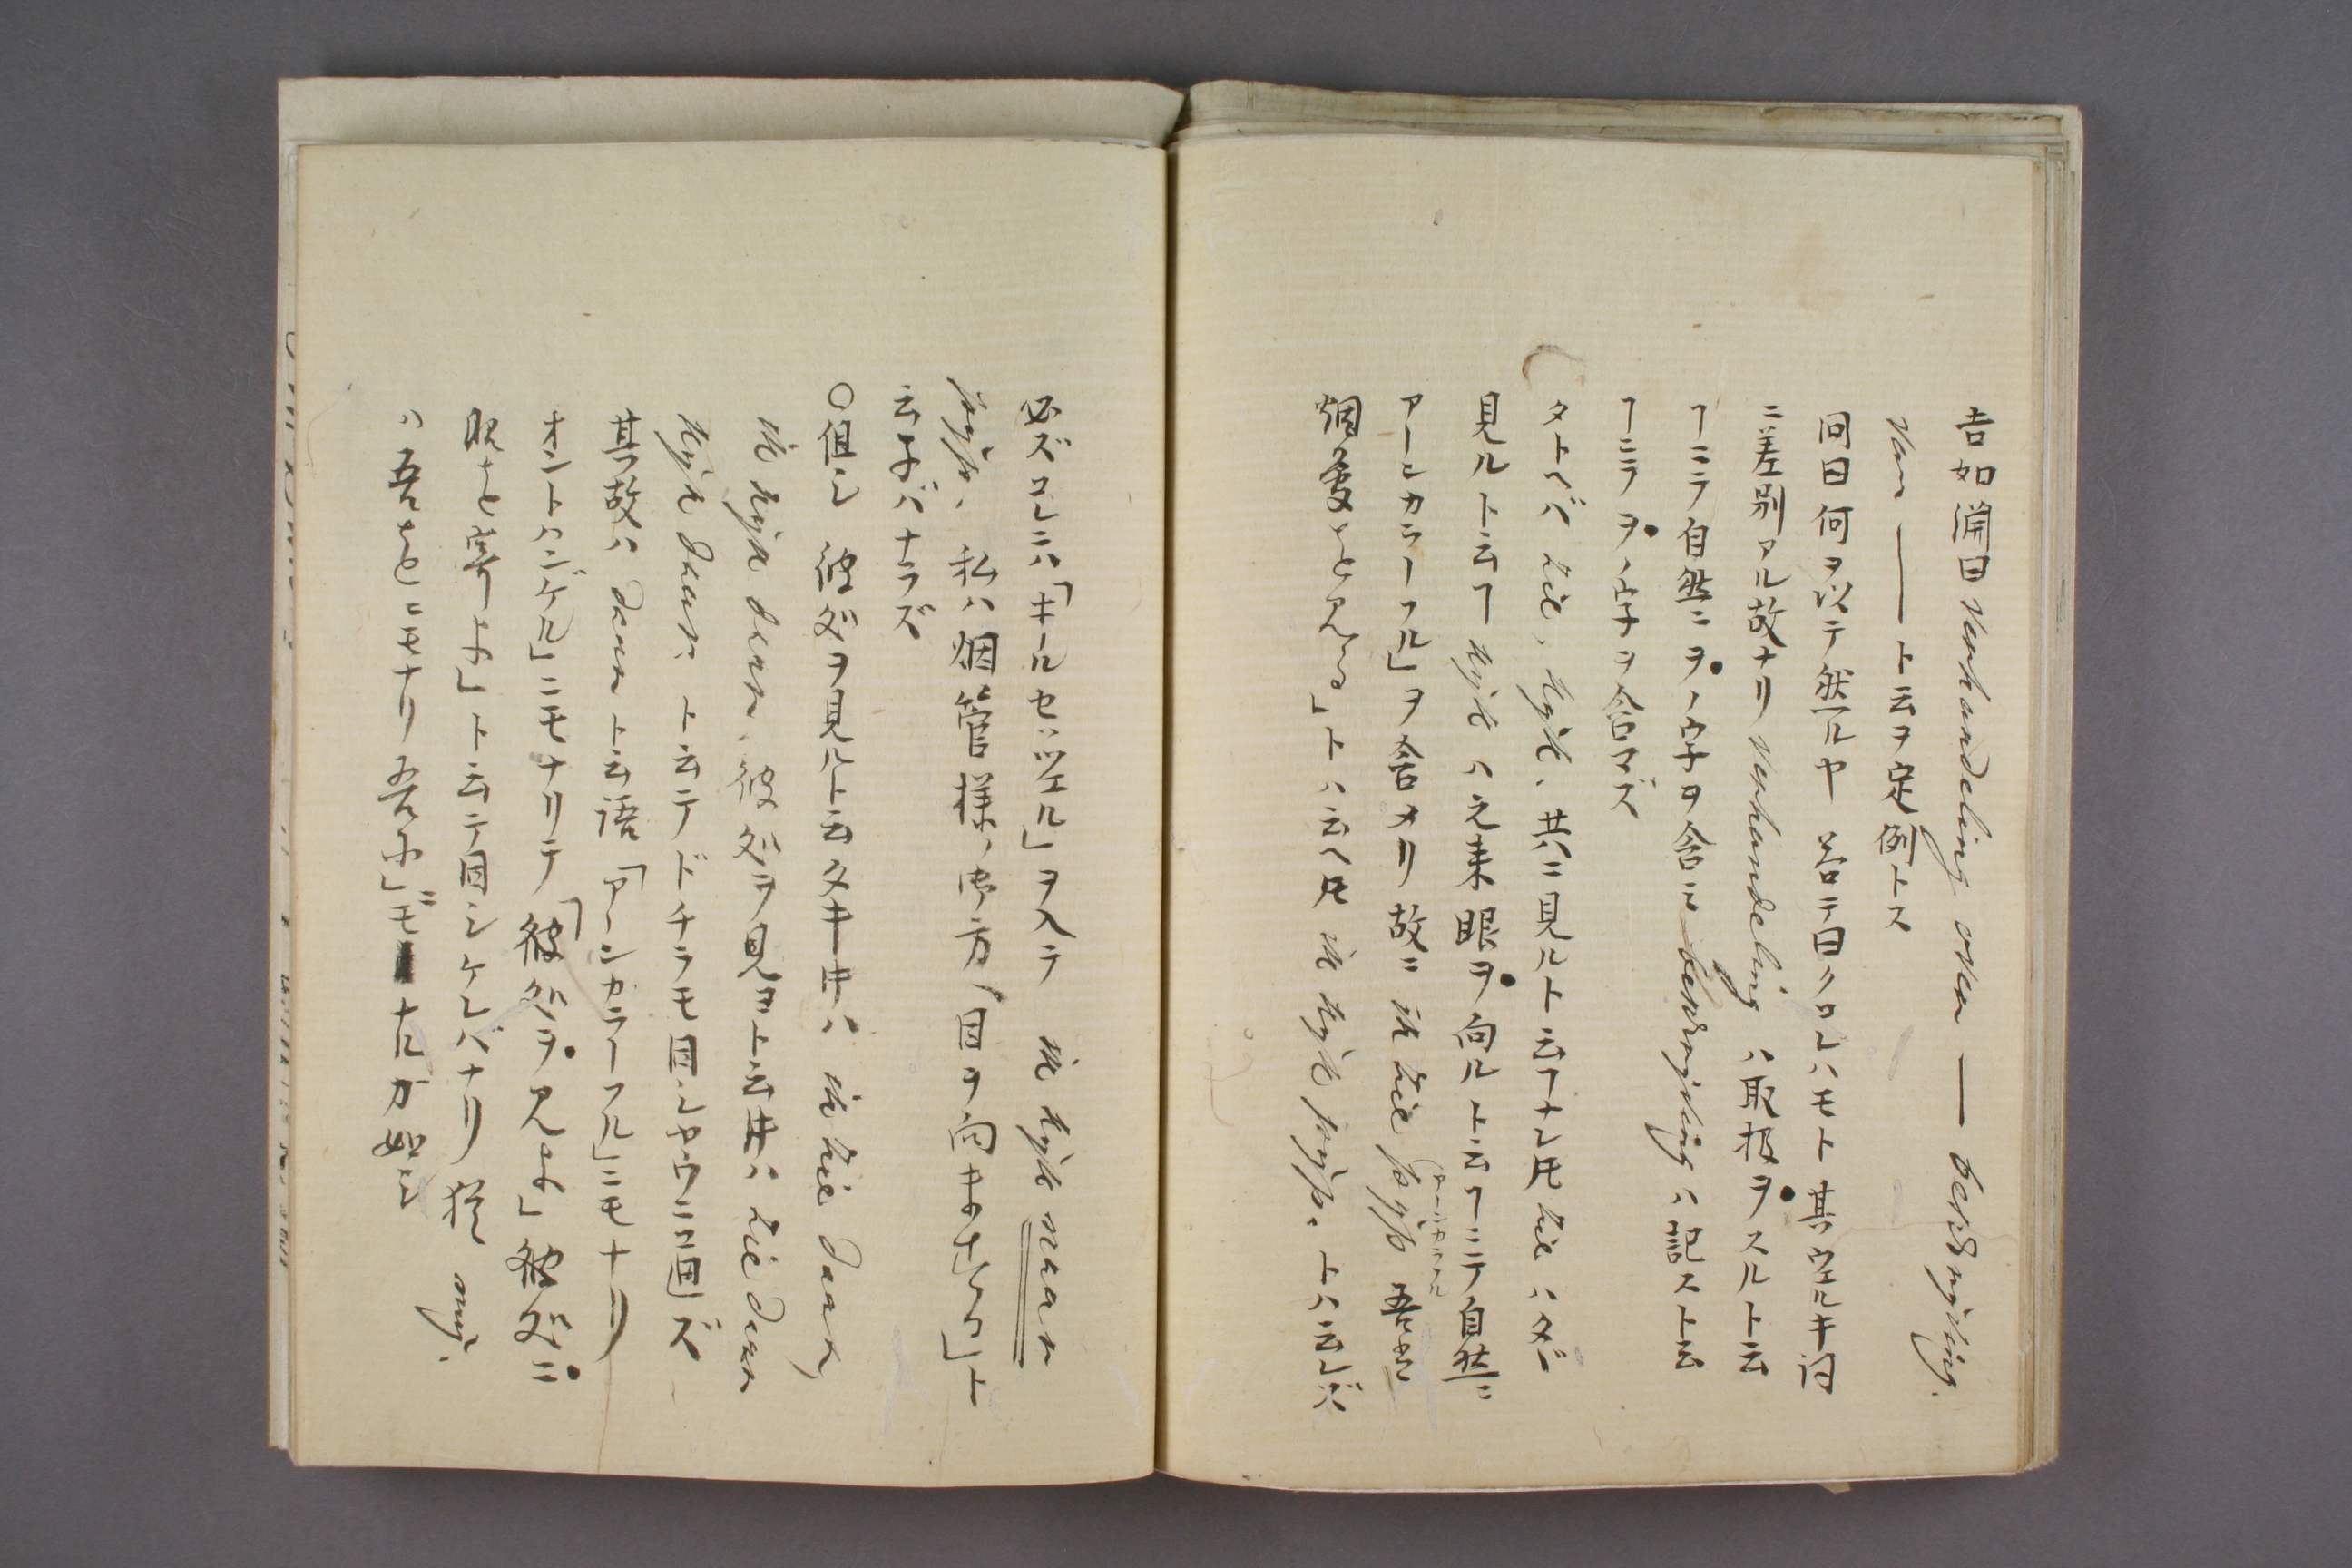 吉如開曰 verhandeling over ― beschrijving.
van ―― ト云ヲ定例トス
同曰何ヲ以テ然ルヤ 答テ曰クコレハモト其ウェルキ詞
ニ差別アル故ナリ verhandeling ハ取扱ヲスルト云
ヿニテ自然ニヲノ字ヲ含ミ beschrijving ハ記スト云
ヿニテヲノ字ヲ含マズ
タトヘバ zie, kyk, 共ニ見ルト云ヿナレ𪜈 zie ハタヾ
見ルト云ヿ kyk ハ元来眼ヲ向ルト云ヿニテ自然ニ
アーンカラーフル」ヲ含メリ故ニ ik zie pyp 吾
アーンカラフル
烟管を見る」トハ云ヘ𪜈 ik kyk pyp. トハ云レズ
必ズコレニハ「キールセッツェル」ヲ入テ ik kyk naar
pyp. 私ハ烟管様ノ方「目ヲ向ました」ト
云子バナラズ
〇但シ 彼処ヲ見ルト云タキ井ハ ik zie daar
ik kyk daar. 彼処ヲ見ヨト云井ハ zie daar
kyk daar ト云テドチラモ同シヤウニ通ズ
其故ハ daar ト云語「アーンカラーフル」ニモナリ
オントハンゲル」ニモナリテ「彼処ヲ見よ」彼処ニ
眼を寄よ」ト云テ同シケレバナリ 猶 my.
ハ吾をニモナリ吾に」ニモナルガ如シ